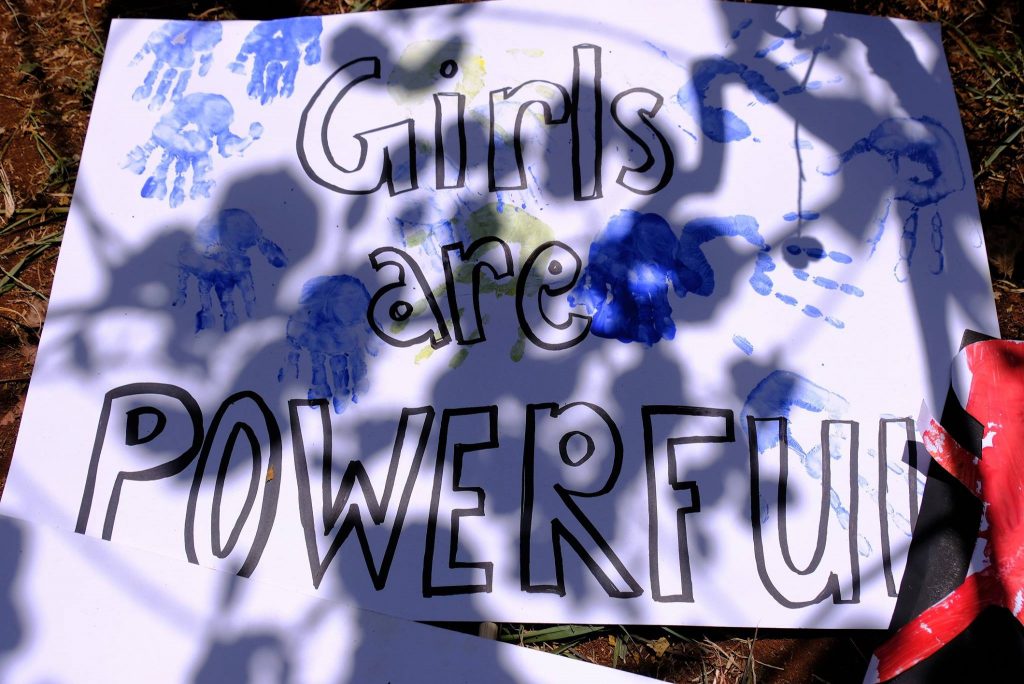 Girls
are
POWERFUl